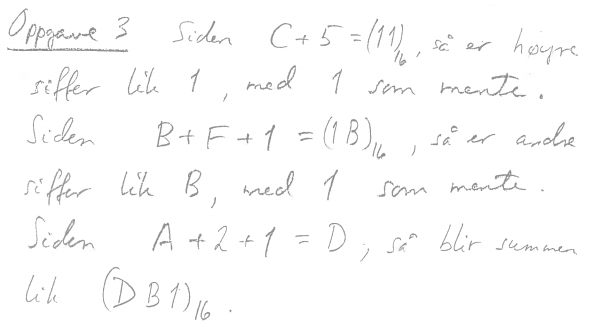 Oppgave 3 Siden C+5=(11)₁₆, så er høyre
siffer lik 1, med 1 som mente.
Siden B+F+1=(1B)₁₆, så er andre
siffer lik B, med 1 som mente.
Siden A+2+1=D, så blir summen
lik (DB1)₁₆.